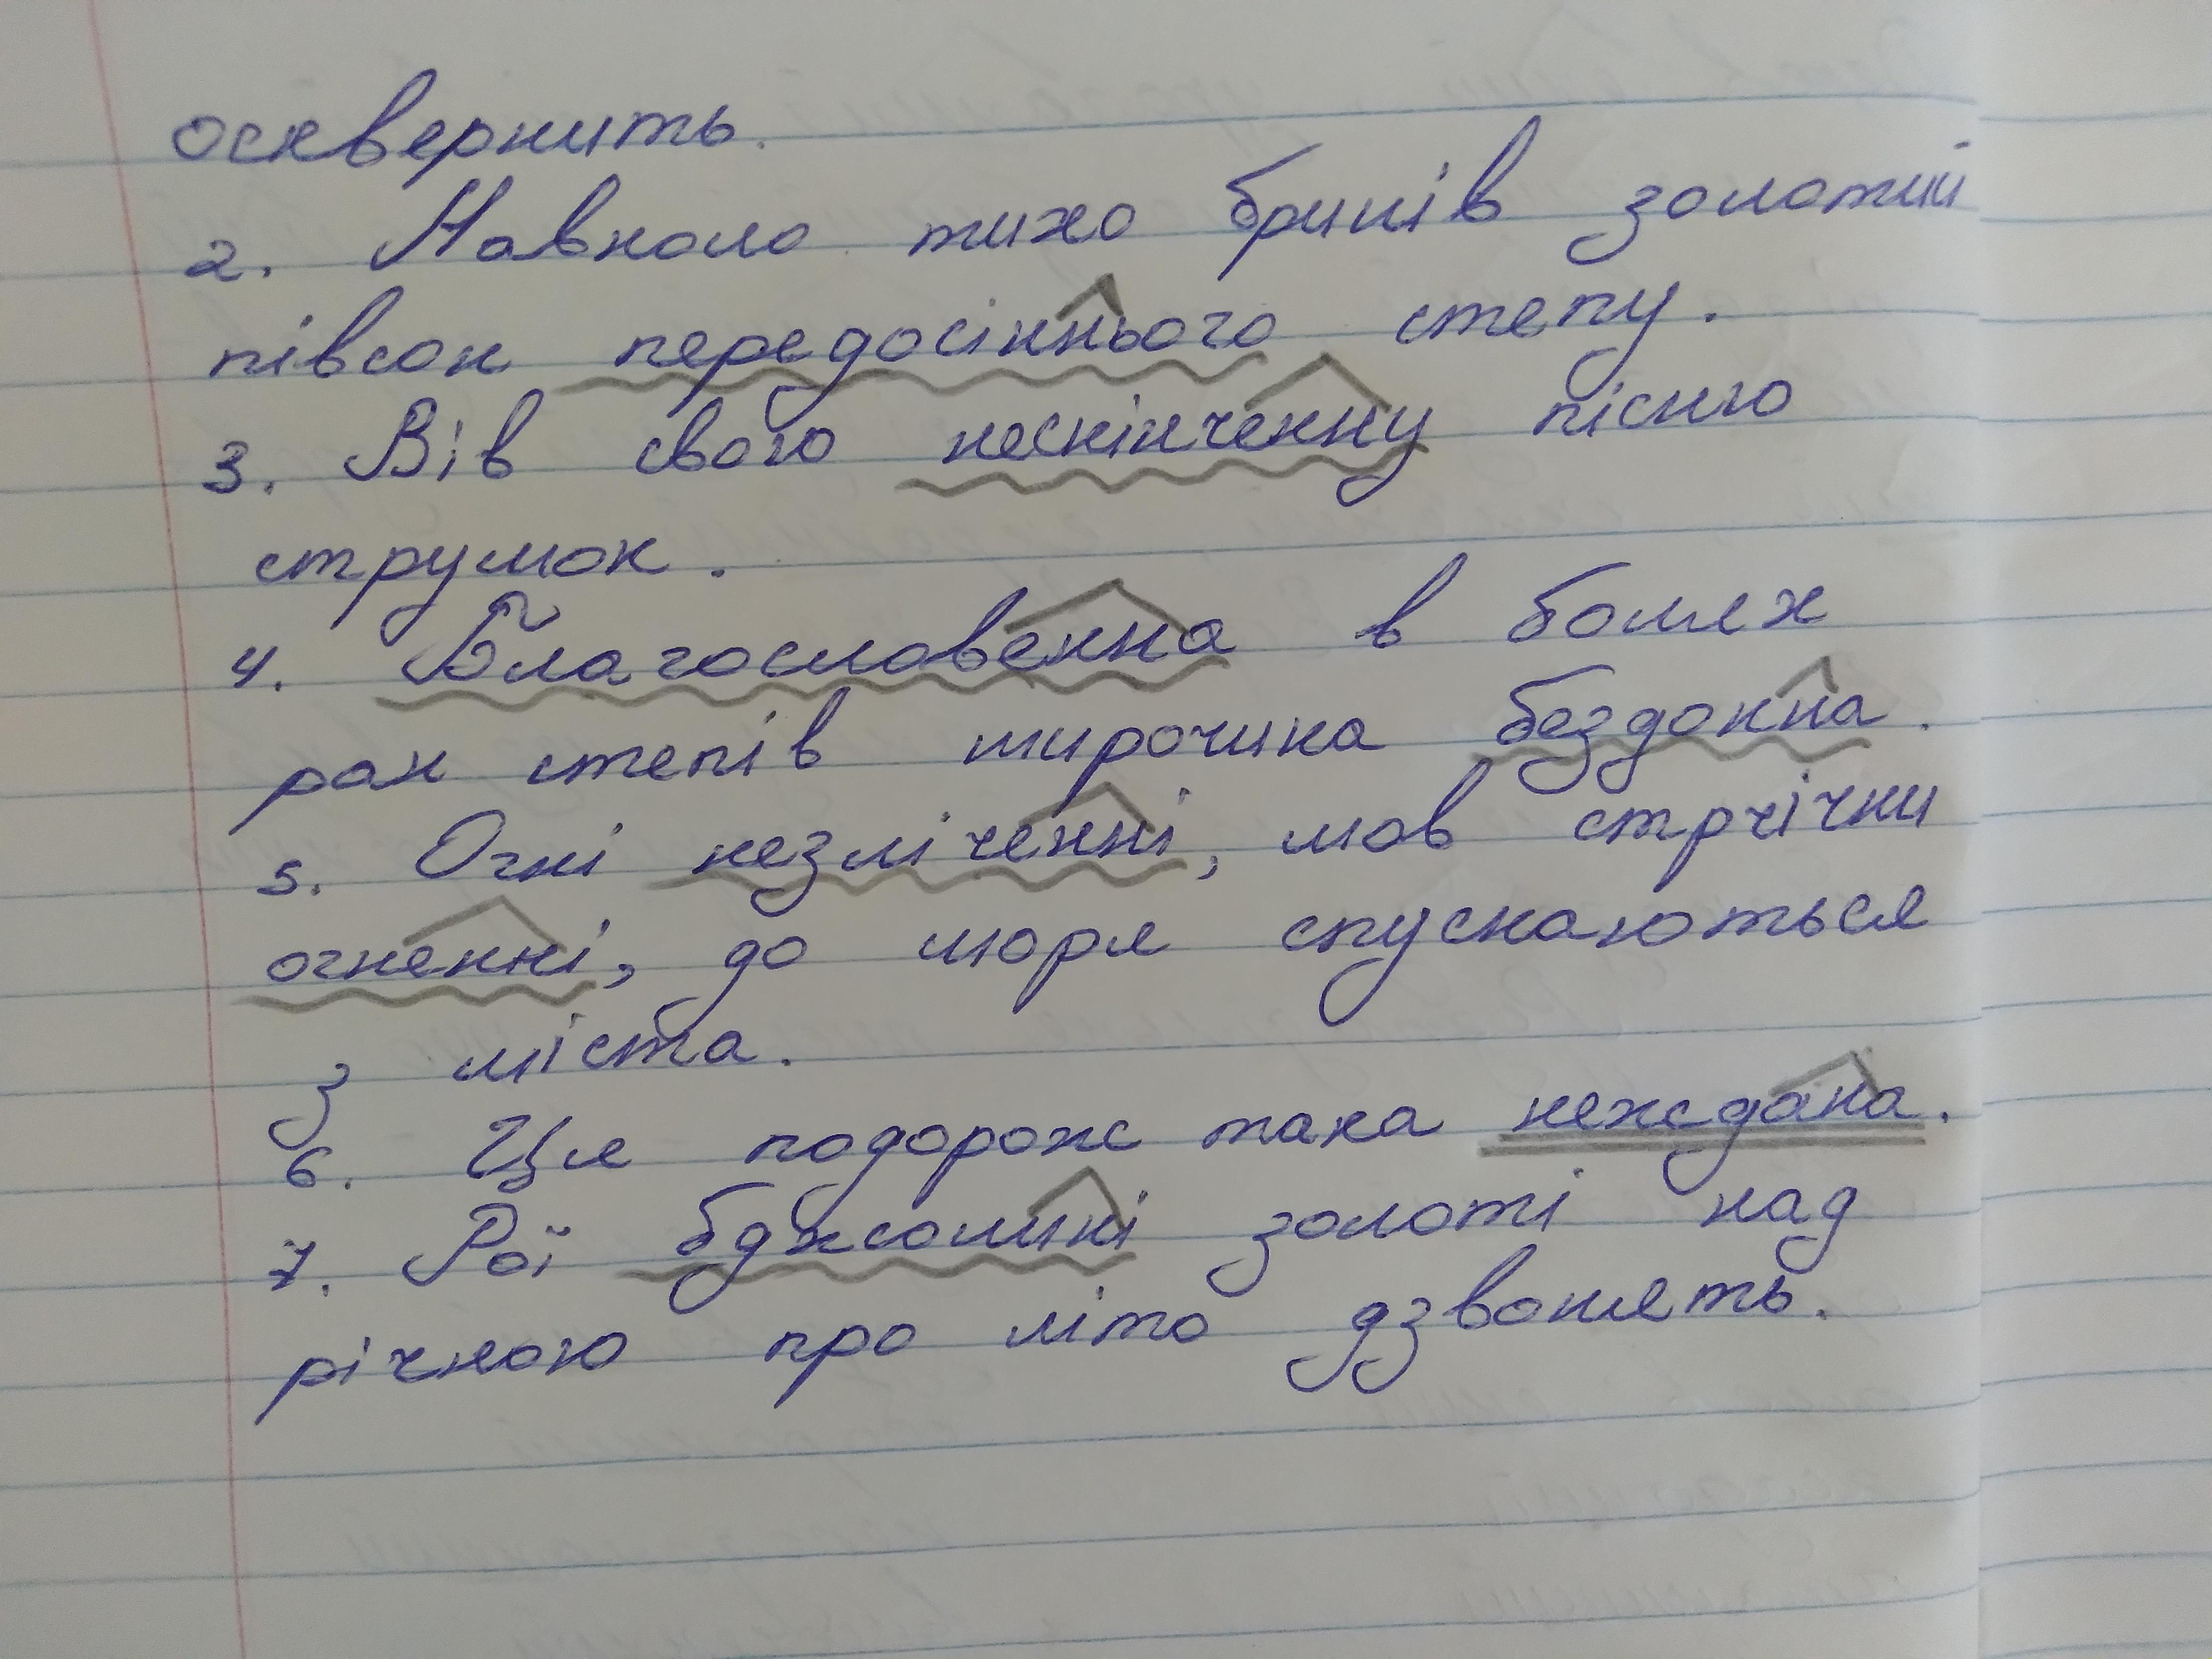 осквернить.
2. Навколо тихо бринів золотий
півсон передосіннього степу.
3. Вів свою нескінченну пісню
струмок.
4. Благословенна в болях
ран степів широчина бездонна.
5. Огні незліченні, мов стрічки
огненні, до моря спускаються
з міста.
6. Ця подорож така неждана.
7. Рої бджолині золоті над
річкою про літо дзвонять.